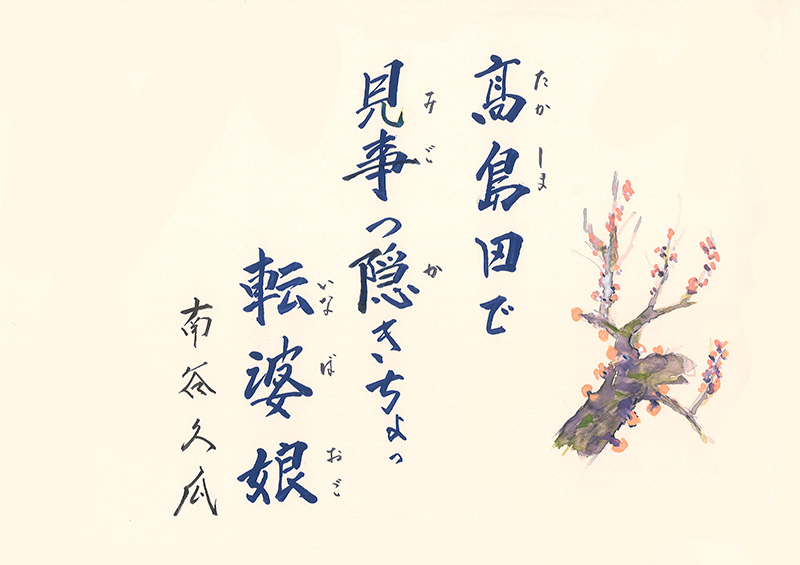 髙島田で
たかしま
見事っ隠きいちょっ
みご か
転婆娘
いなば おご
南谷久瓜